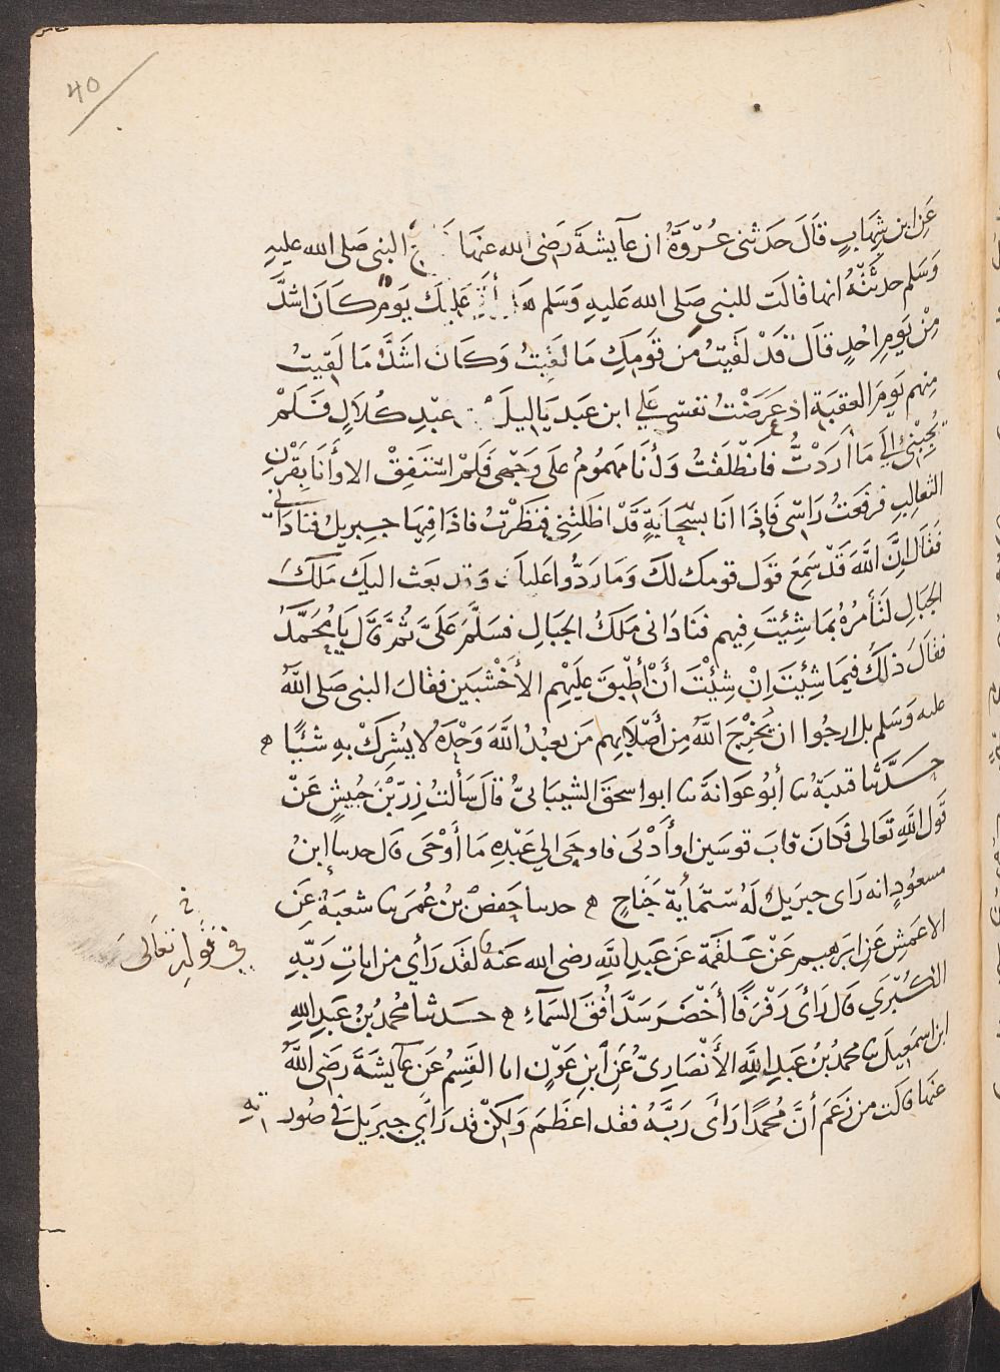 40
عَنِ ابن شِهَابٍ قَالَ حَدثنى عُرْوَةُ ان عآيشةَ رَضى الله عنهَا البنى صَلى الله عليهِ
وَسَلم حدثَتْهُ انها قالَت للبنى صَلى الله عَليهِ وَسَلم عَليكَ يَومٌ كَانَ اشدَّ
مِنْ يَومِ احُدٍ قَالَ قَدْ لَقيتُ مِن قَومِكِ مَا لَقِيتُ وَكَان اشَدَّ مَا لَقِيتُ
مِنهم يَومَ العقبَةِ اذ عَرَضْتُ نفسى عَلي ابن عَبد يَاليلَ عبْدِ كُلَالٍ فَلَمْ
يُجِبْنِى الَي مَا أرَدْتُّ فَانْطَلَقتُ وَأنَا مَهمُومٌ عَلى وَجْهى فَلَمْ استَفِقْ الا وَأنَا بِقَرْنِ
الثعالِبِ فرفعَتُ رَاسى فَإِذَا انَا بسَحَابَةٍ قَدْ اظلَتْنِى فنَظَرْتُ فاذَا فِيهَا جِبرِيلُ فنَادَانى
فقَالَ إنَّ اللَّهَ قَدْ سَمِعَ قَول قومِكَ لكَ وَمَا رَدُّوا عَليكَ وَقد بعَث اليكَ مَلَكَ
الجبَالِ لتَأمُرَهُ بمَا شِيْتَ فِيهم فنَادَانى مَلَكُ الجبَالِ فسَلَّمَ عَلَىَّ ثُمَّ قَالَ يَا مُحَمَّدُ
فقالَ ذلكَ فيمَا شِيْتَ اِنْ شِيْتَ أنْ أُطْبِقَ عليَهْمِ الأَخْشَبَينِ فقَالَ البنى صَلى اللَّهُ
عليه وَسَلم بل ارجُوا ان يُخْرِجَ اللَّهُ مِن أصْلَابِهم مَن يعبُدُ اللَّهَ وَحْدَهُ لا يُشرِكْ بِهِ شَيْئًا ه
حَدَّثنا قتيبَة ثنا أبُو عَوَانةَ ثنا ابوا سحَقَ الشيبَانىُّ قَالَ سَألتُ زِرَّ بْنَ حُبيشٍ عَنْ
قَول اللَّهِ تَعَالى فَكانَ قابَ قوسَين او أَدْنَى فاوحَى الي عَبْدِهِ مَا أَوْحَى قَال حدثنا ابنُ
مسعُودٍ انه رَاى جبريلَ لَهُ ستمايَةِ جَنَاحٍ ه حدثنا حَفصُ بنُ عُمَر ثنا شعبَةُ عَنِ
الاعمَشِ عَن ابرَهيم عَنْ عَلقَمَة عَن عَبدِ اللَّهِ رضى الله عَنهُ لقَد رَأي من اياتِ رَبِّهِ
الكُبْرَي قَال رَأى رَفْرَفًا أخْضَرَ سَدَّ افُقَ السَمآءِ ه حَدثنا مُحمدُ بْنُ عَبدِ اللَّهِ
ابن اسمعِيلَ ثنا محمدُ بْنُ عَبدِ اللَّهِ الأنْصَارِىُّ عَنِ ابنِ عَوْنٍ انا القَسِمُ عَن عآيشَةَ رَضى اللَّهُ
عَنهَا قالَت من زَعَمَ أنَّ مُحمدًا رَأَى رَبَّهُ فقد اعظَمَ وَلكِنْ قد رَأي جبريَلَ فى صُورتِهِ
في قوله تعَالى